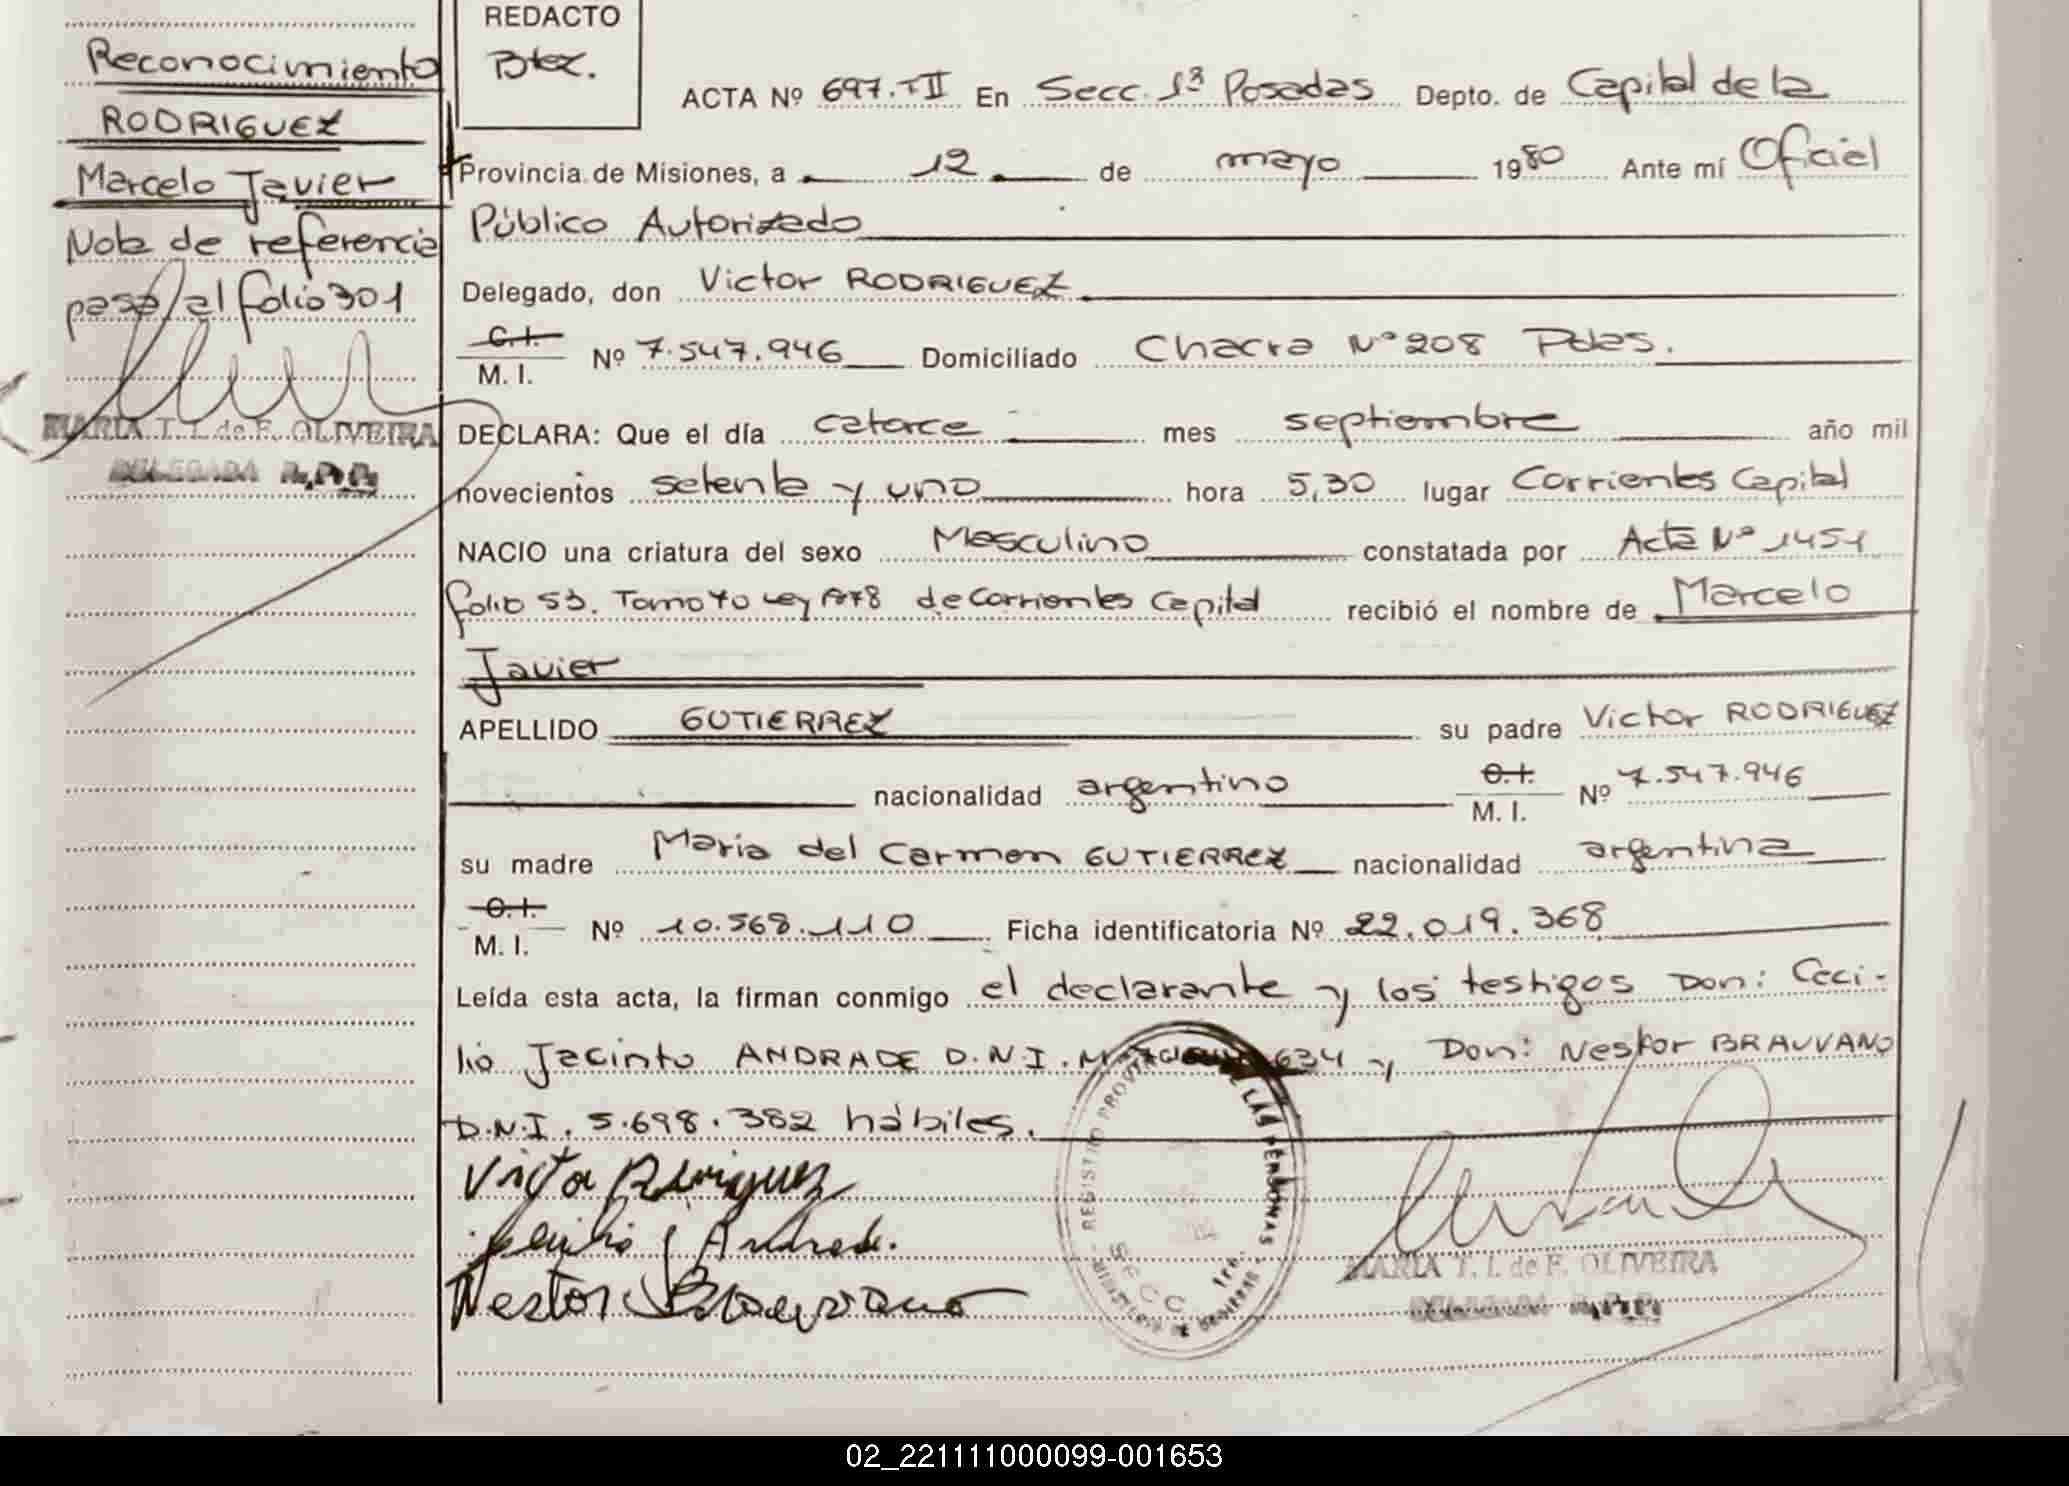 Reconocimiento
RODRIGUEZ
Marcelo Javier
Nota de referencia
pasa al folio 301
MARIA T. I. de F. OLIVEIRA
DELEGADA R.P.P.
REDACTO
ACTA Nº 697.TII En Secc. 1ª Posadas Depto. de Capital de la
Provincia de Misiones, a 12 de mayo 1980 Ante mí Oficial
Público Autorizado
Delegado, don Victor RODRIGUEZ
C.I.
M. I. Nº 7.547.946 Domiciliado Chacra Nº 208 Pdas.
DECLARA: Que el día catorce mes septiembre año mil
novecientos setenta y uno hora 5,30 lugar Corrientes Capital
NACIO una criatura del sexo Masculino constatada por Acta Nº 1451
folio 53. Tomo Ley de Corrientes Capital recibió el nombre de Marcelo
Javier
APELLIDO GUTIERREZ su padre Victor RODRIGUEZ
nacionalidad argentino C.I. M. I. Nº 7.547.946
su madre Maria del Carmen GUTIERREZ nacionalidad argentina
C.I.
M. I. Nº 10.568.110 Ficha identificatoria Nº 22.019.368
Leída esta acta, la firman conmigo el declarante y los testigos Don: Ceci-
lio Jacinto ANDRADE D.N.I. 634 y Don: Nestor BRAUVANO
D.N.I. 5.698.382 hábiles.
Victor Rodriguez
Andrade.
Nestor
REGISTRO PROVINCIAL DE LAS PERSONAS
SECC. 1ra.
MARIA T. I. de F. OLIVEIRA
DELEGADA R.P.P.
02_221111000099-001653